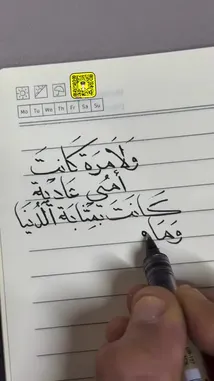 Mo Tu We Th Fr Sa Su
وَلَا مَرَة كَانَتَ
أمَيُ عَادَيَة
كَانَتَ بَمَثَابَة الَدُنَيَا
وَمَا